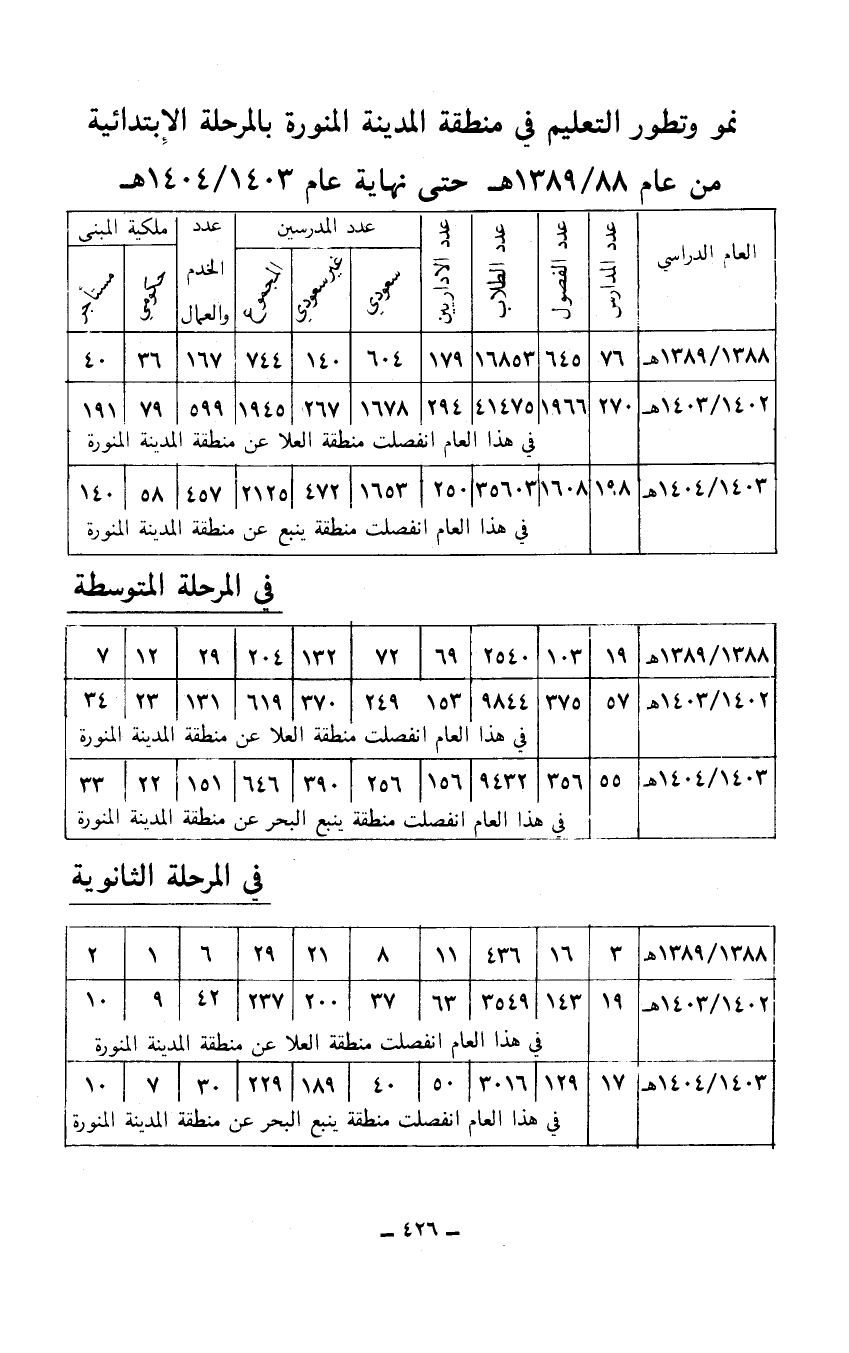 نمو وتطور التعليم في منطقة المدينة المنورة بالمرحلة الإبتدائية
من عام ١٣٨٩/٨٨هـ حتى نهاية عام ١٤٠٤/١٤٠٣هـ
العام الدراسي | عدد المدارس | عدد الفصول | عدد الطلاب | عدد الاداريين | عدد المدرسين | عدد الخدم والعمال | ملكية المبنى
سعودي | غير سعودي | المجموع | حكومي | مستأجر
١٣٨٩/١٣٨٨هـ | ٧٦ | ٦٤٥ | ١٦٨٥٣ | ١٧٩ | ٦٠٤ | ١٤٠ | ٧٤٤ | ١٦٧ | ٣٦ | ٤٠
١٤٠٣/١٤٠٢هـ | ٢٧٠ | ١٩٦٦ | ٤١٤٧٥ | ٢٩٤ | ١٦٧٨ | ٢٦٧ | ١٩٤٥ | ٥٩٩ | ٧٩ | ١٩١
في هذا العام انفصلت منطقة العلا عن منطقة المدينة المنورة
١٤٠٤/١٤٠٣هـ | ١٩٨ | ١٦٠٨ | ٣٥٦٠٣ | ٢٥٠ | ١٦٥٣ | ٤٧٢ | ٢١٢٥ | ٤٥٧ | ٥٨ | ١٤٠
في هذا العام انفصلت منطقة ينبع عن منطقة المدينة المنورة
في المرحلة المتوسطة
١٣٨٩/١٣٨٨هـ | ١٩ | ١٠٣ | ٢٥٤٠ | ٦٩ | ٧٢ | ١٣٢ | ٢٠٤ | ٢٩ | ١٢ | ٧
١٤٠٣/١٤٠٢هـ | ٥٧ | ٣٧٥ | ٩٨٤٤ | ١٥٣ | ٢٤٩ | ٣٧٠ | ٦١٩ | ١٣١ | ٢٣ | ٣٤
في هذا العام انفصلت منطقة العلا عن منطقة المدينة المنورة
١٤٠٤/١٤٠٣هـ | ٥٥ | ٣٥٦ | ٩٤٣٢ | ١٥٦ | ٢٥٦ | ٣٩٠ | ٦٤٦ | ١٥١ | ٢٢ | ٣٣
في هذا العام انفصلت منطقة ينبع البحر عن منطقة المدينة المنورة
في المرحلة الثانوية
١٣٨٩/١٣٨٨هـ | ٣ | ١٦ | ٤٣٦ | ١١ | ٨ | ٢١ | ٢٩ | ٦ | ١ | ٢
١٤٠٣/١٤٠٢هـ | ١٩ | ١٤٣ | ٣٥٤٩ | ٦٣ | ٣٧ | ٢٠٠ | ٢٣٧ | ٤٢ | ٩ | ١٠
في هذا العام انفصلت منطقة العلا عن منطقة المدينة المنورة
١٤٠٤/١٤٠٣هـ | ١٧ | ١٢٩ | ٣٠١٦ | ٥٠ | ٤٠ | ١٨٩ | ٢٢٩ | ٣٠ | ٧ | ١٠
في هذا العام انفصلت منطقة ينبع البحر عن منطقة المدينة المنورة
– ٤٢٦ –